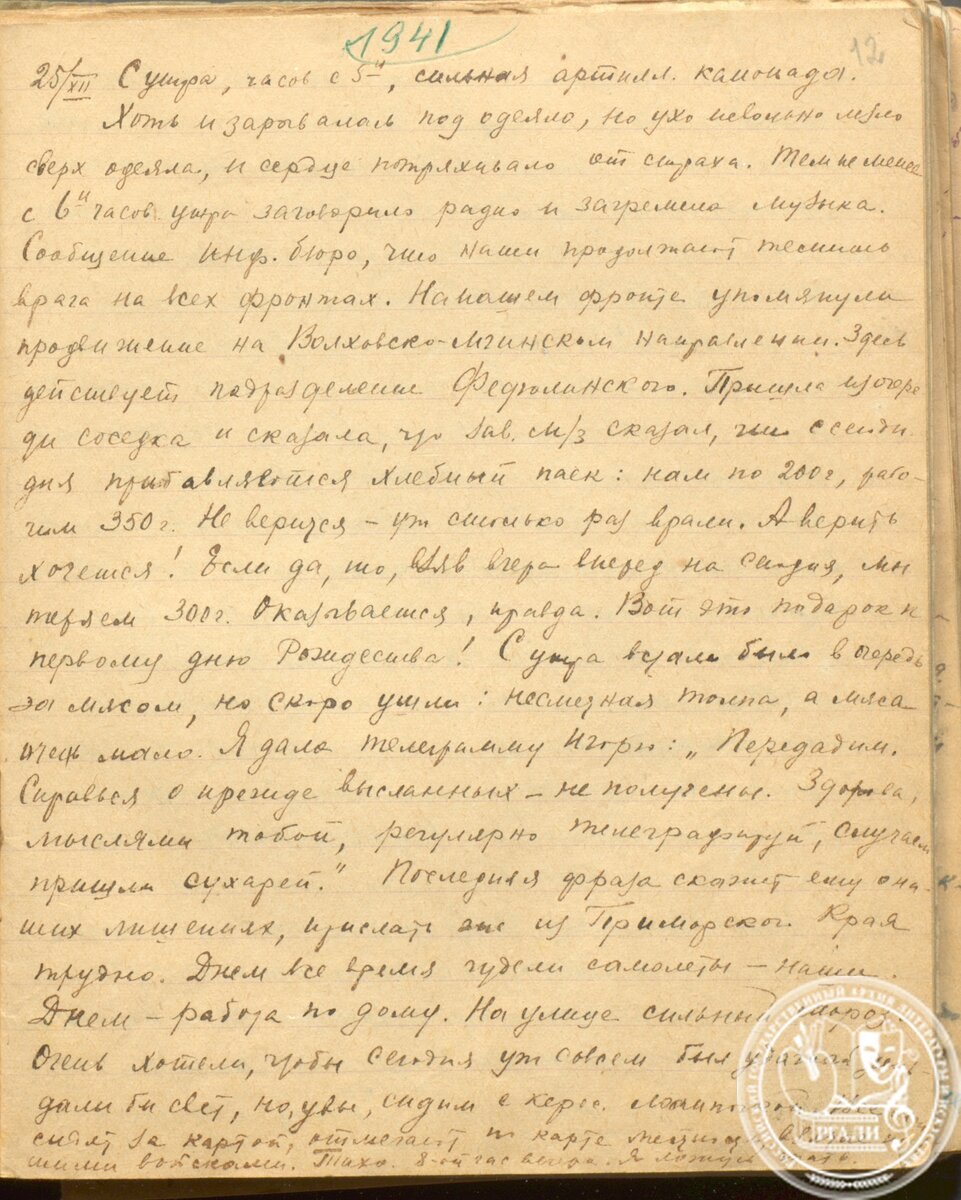 1941
12
25/XII С утра, часов с 5-и, сильная артилл. канонада.
Хоть и зарывалась под одеяло, но ухо невольно лезло
сверх одеяла, и сердце потряхивало от страха. Тем не менее
с 6-и часов утра заговорило радио и загремела музыка.
Сообщение Инф. бюро, что наши продолжают теснить
врага на всех фронтах. На нашем фронте упомянули
продвижение на Волховско-Мгинском направлении. Здесь
действует подразделение Федюнинского. Пришла из очере
ди соседка и сказала, что зав. м/з сказал, что с сегод-
дня прибавляется хлебный паек: нам по 200г, рабо-
чим 350г. Не верится – уж столько раз врали. А верить
хочется! Если да, то, взяв вчера вперед на сегодня, мы
теряем 300г. Оказывается, правда. Вот это подарок к
первому дню Рождества! С утра встали было в очередь
за мясом, но скоро ушли: несметная толпа, а мяса
очень мало. Я дала телеграмму Игорю: „Передадим.
Справься о прежде высланных – не получены. Здоровы,
мыслями тобой, регулярно телеграфируй, случаем
пришли сухарей." Последняя фраза скажет ему о на-
ших лишениях, прислать из Приморского Края
трудно. Днем все время гудели самолеты – наши.
Днем – работа по дому. На улице сильный мороз.
Очень хотели, чтобы сегодня уж совсем был
дали бы свет, но, увы, сидим с керос.
сидят за картой, отмечают по карте
шими войсками. Тихо. 8-ой час вечера. Я ложусь спать.
РГАЛИ